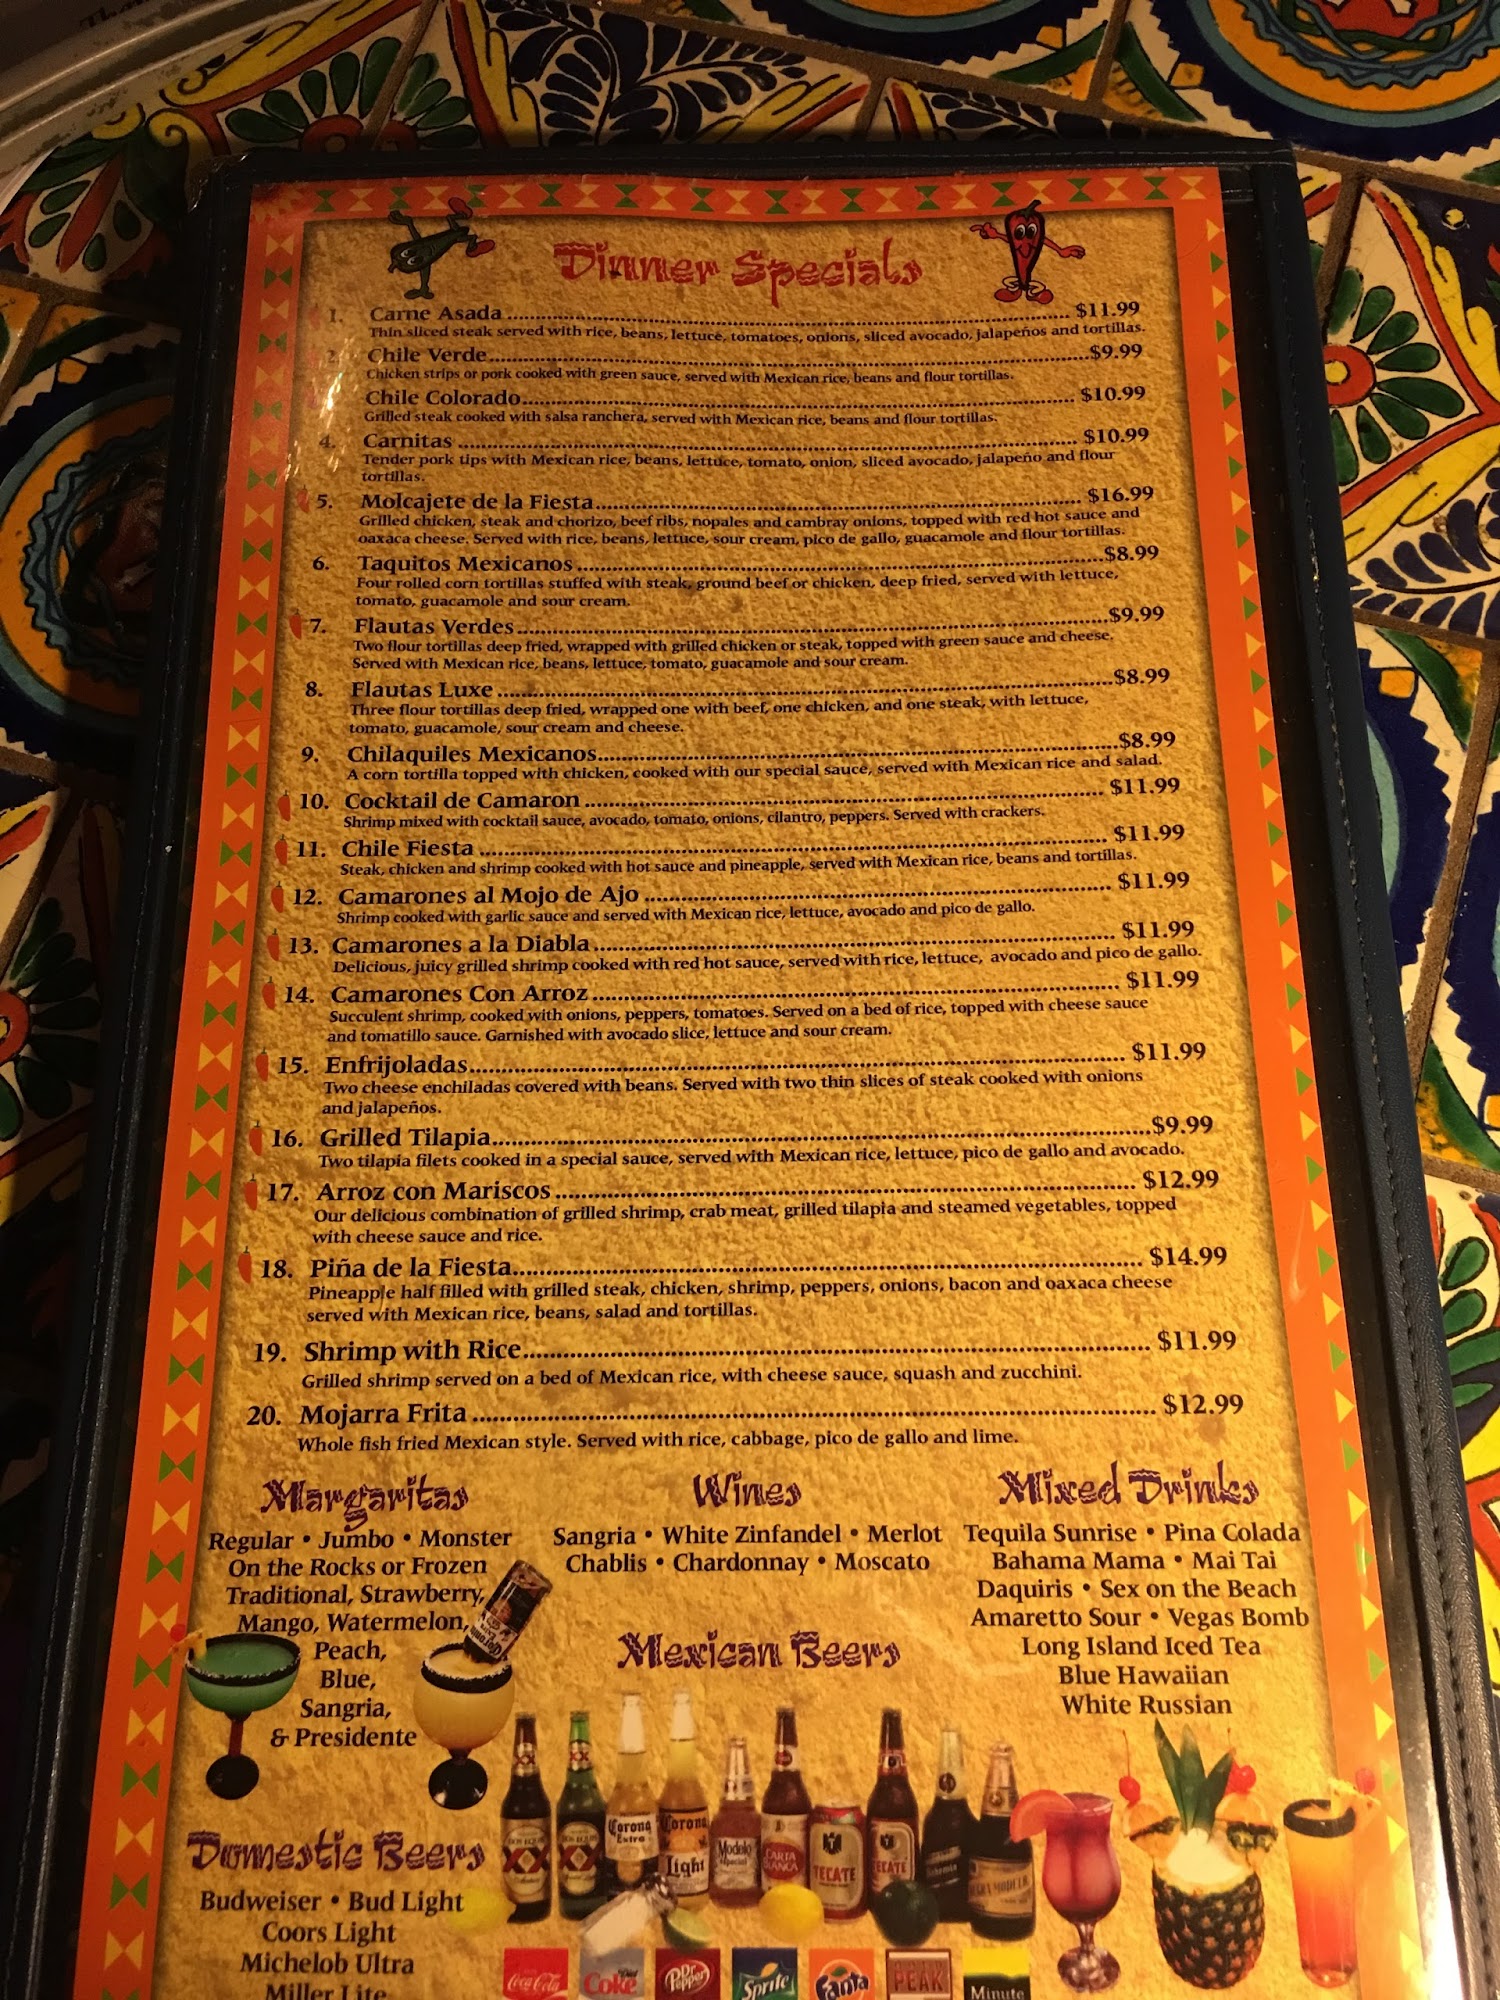 Dinner Specials
1. Carne Asada ........ $11.99
Thin sliced steak served with rice, beans, lettuce, tomatoes, onions, sliced avocado, jalapeños and tortillas.
2. Chile Verde ........ $9.99
Chicken strips or pork cooked with green sauce, served with Mexican rice, beans and flour tortillas.
Chile Colorado ........ $10.99
Grilled steak cooked with salsa ranchera, served with Mexican rice, beans and flour tortillas.
4. Carnitas ........ $10.99
Tender pork tips with Mexican rice, beans, lettuce, tomato, onion, sliced avocado, jalapeño and flour
tortillas.
5. Molcajete de la Fiesta ........ $16.99
Grilled chicken, steak and chorizo, beef ribs, nopales and cambray onions, topped with red hot sauce and
oaxaca cheese. Served with rice, beans, lettuce, sour cream, pico de gallo, guacamole and flour tortillas.
6. Taquitos Mexicanos ........ $8.99
Four rolled corn tortillas stuffed with steak, ground beef or chicken, deep fried, served with lettuce,
tomato, guacamole and sour cream.
7. Flautas Verdes ........ $9.99
Two flour tortillas deep fried, wrapped with grilled chicken or steak, topped with green sauce and cheese.
Served with Mexican rice, beans, lettuce, tomato, guacamole and sour cream.
8. Flautas Luxe ........ $8.99
Three flour tortillas deep fried, wrapped one with beef, one chicken, and one steak, with lettuce,
tomato, guacamole, sour cream and cheese.
9. Chilaquiles Mexicanos ........ $8.99
A corn tortilla topped with chicken, cooked with our special sauce, served with Mexican rice and salad.
10. Cocktail de Camaron ........ $11.99
Shrimp mixed with cocktail sauce, avocado, tomato, onions, cilantro, peppers. Served with crackers.
11. Chile Fiesta ........ $11.99
Steak, chicken and shrimp cooked with hot sauce and pineapple, served with Mexican rice, beans and tortillas.
12. Camarones al Mojo de Ajo ........ $11.99
Shrimp cooked with garlic sauce and served with Mexican rice, lettuce, avocado and pico de gallo.
13. Camarones a la Diabla ........ $11.99
Delicious, juicy grilled shrimp cooked with red hot sauce, served with rice, lettuce, avocado and pico de gallo.
14. Camarones Con Arroz ........ $11.99
Succulent shrimp, cooked with onions, peppers, tomatoes. Served on a bed of rice, topped with cheese sauce
and tomatillo sauce. Garnished with avocado slice, lettuce and sour cream.
15. Enfrijoladas ........ $11.99
Two cheese enchiladas covered with beans. Served with two thin slices of steak cooked with onions
and jalapeños.
16. Grilled Tilapia ........ $9.99
Two tilapia filets cooked in a special sauce, served with Mexican rice, lettuce, pico de gallo and avocado.
17. Arroz con Mariscos ........ $12.99
Our delicious combination of grilled shrimp, crab meat, grilled tilapia and steamed vegetables, topped
with cheese sauce and rice.
18. Piña de la Fiesta ........ $14.99
Pineapple half filled with grilled steak, chicken, shrimp, peppers, onions, bacon and oaxaca cheese
served with Mexican rice, beans, salad and tortillas.
19. Shrimp with Rice ........ $11.99
Grilled shrimp served on a bed of Mexican rice, with cheese sauce, squash and zucchini.
20. Mojarra Frita ........ $12.99
Whole fish fried Mexican style. Served with rice, cabbage, pico de gallo and lime.
Margaritas
Regular • Jumbo • Monster
On the Rocks or Frozen
Traditional, Strawberry,
Mango, Watermelon,
Peach,
Blue,
Sangria,
& Presidente
Wines
Sangria • White Zinfandel • Merlot
Chablis • Chardonnay • Moscato
Mixed Drinks
Tequila Sunrise • Pina Colada
Bahama Mama • Mai Tai
Daquiris • Sex on the Beach
Amaretto Sour • Vegas Bomb
Long Island Iced Tea
Blue Hawaiian
White Russian
Mexican Beers
XX
XX
Corona Extra
Corona Light
Modelo Especial
CARTA BLANCA
TECATE
TECATE
Bohemia
Domestic Beers
Budweiser • Bud Light
Coors Light
Michelob Ultra
Miller Lite
Coca-Cola
Coke
Dr Pepper
Sprite
Fanta
PEAK
Minute